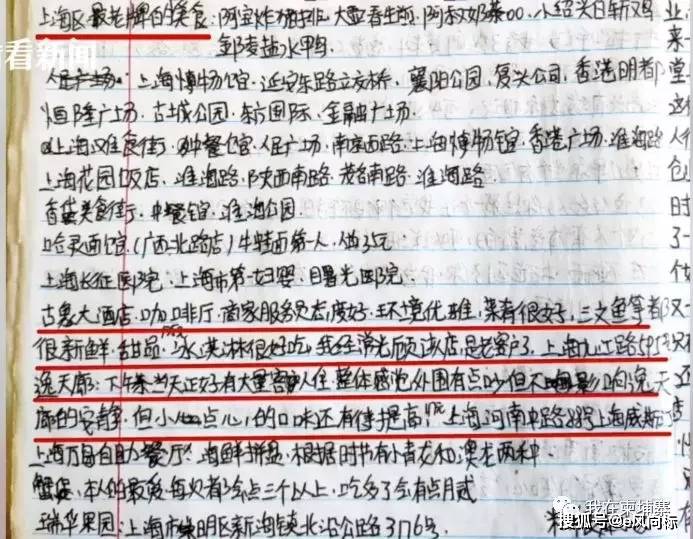 看看新闻
上海区最老牌的美食:阿宝炸猪排.大壶春生煎.阿叔奶茶00.小绍兴白斩鸡
盐水鸭
人民广场.上海博物馆.延安东路立交桥.襄阳公园.复兴公司.香港明都
恒隆广场.古城公园.东方国际.金融广场.
上海汉唯食街.中餐馆.人民广场.南京西路.上海博物馆.香港广场.淮海路
上海花园饭店.淮海路.陕西南路.茂名南路.淮海路.
美食街.中餐馆.淮海公园.
哈灵面馆.(广西北路店)牛蛙面第一人.做
上海长征医院.上海市第一妇婴.曙光医院.
古象大酒店.咖啡厅.商家服务员态度好.环境优雅.菜肴很好.三文鱼等都
很新鲜.甜品.冰淇淋很好吃.我经常光顾该店.是老客户了.上海九江路595
逸天廊:下午茶当天正好有大量客人住.整体感觉外围有点吵但不影响逸天
廊的安静.但小点心的口味还有待提高.上海河南中路88号上海威斯
上海万自助餐厅:海鲜拼盘.根据时节有小青龙和澳龙两种
蟹黄.本人的最爱.每次都会点三个以上.吃多了会有点月贰
瑞华果园:上海市崇明区新海镇北沿公路3176号.
我在柬埔寨
搜狐号@风向标